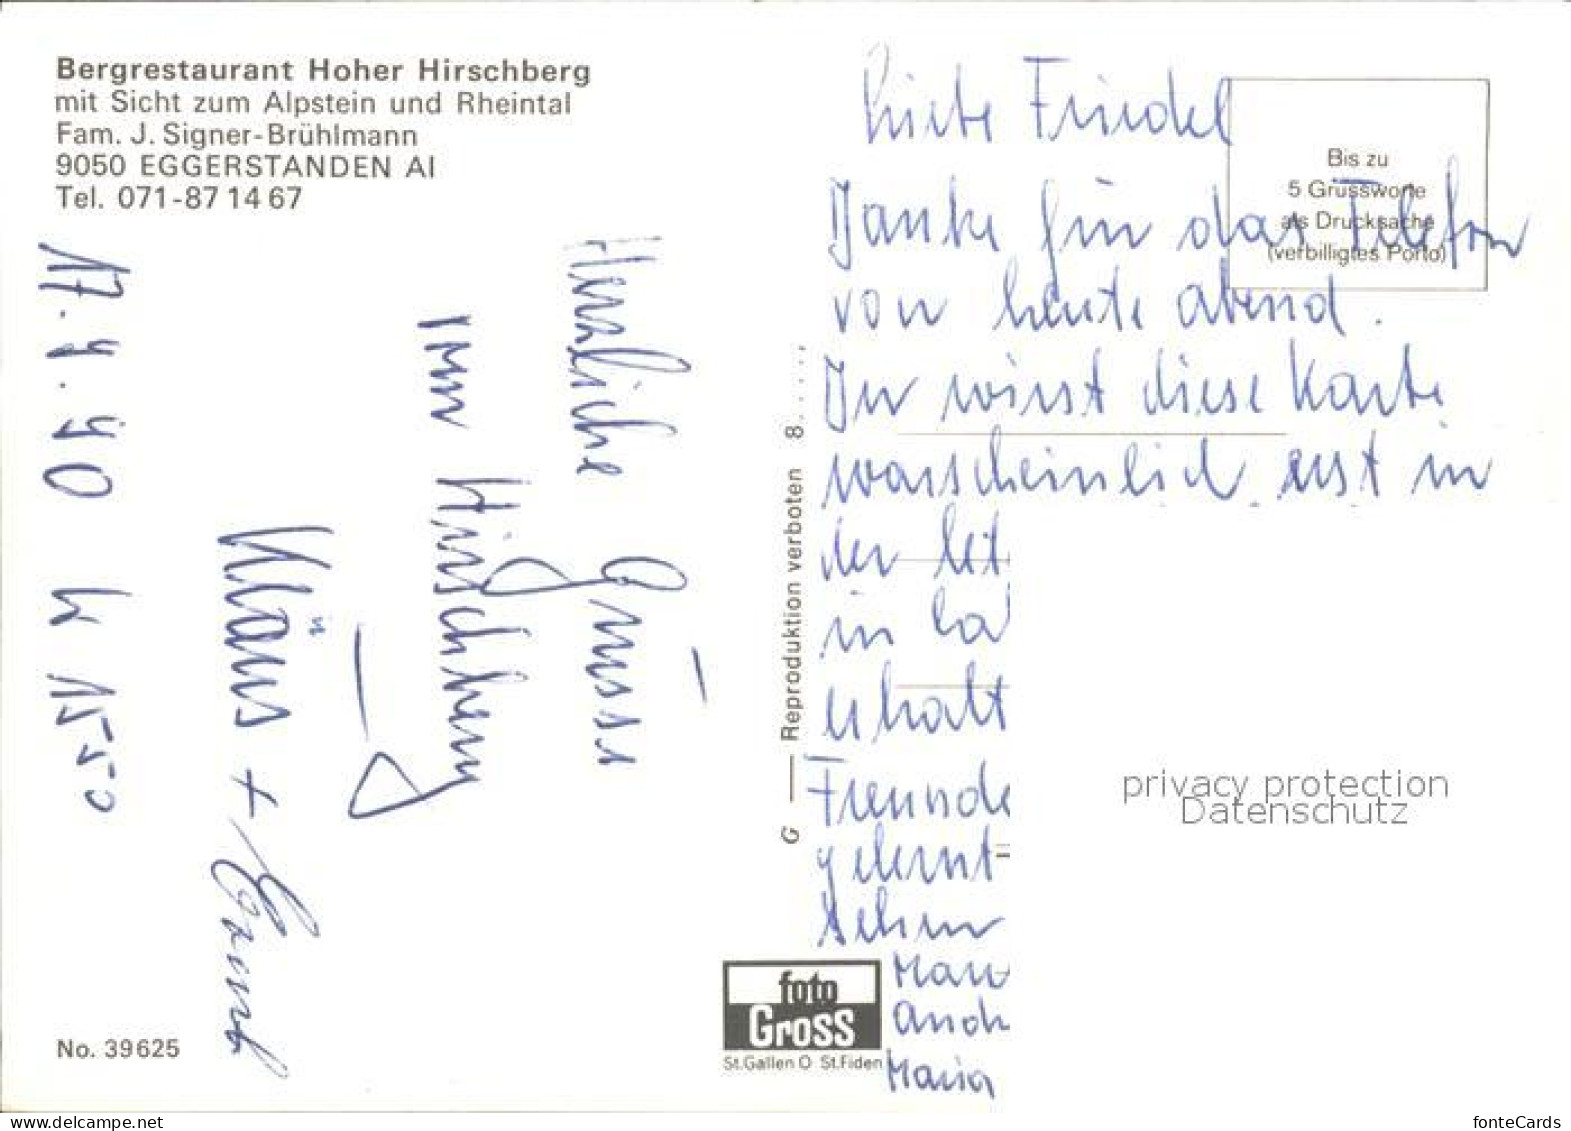 Bergrestaurant Hoher Hirschberg
mit Sicht zum Alpstein und Rheintal
Fam. J. Signer-Brühlmann
9050 EGGERSTANDEN AI
Tel. 071-87 14 67
Herzliche Grüsse
vom Hirschberg
Kläus +
17. 9. 90
No. 39625
G — Reproduktion verboten 8.....
foto
GROSS
St.Gallen O St.Fiden
Bis zu
5 Grussworte
als Drucksache
(verbilligtes Porto)
Liebe Friedel
Danke für das Telefon
von heute abend.
Du wirst diese Karte
warscheinlich erst in
der
in
erhalt
Freunde
gelernt
Maria
privacy protection
Datenschutz
www.delcampe.net
fonteCards